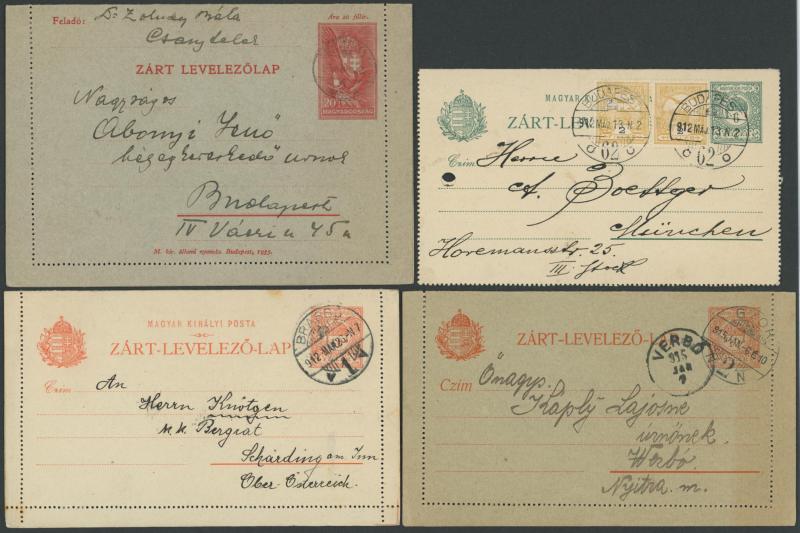 Feladó: Dr Zoluay Béla
Csanytelek
Ára 20 fillér.
20
MAGYARORSZÁG
ZÁRT LEVELEZŐLAP
Nagyságos
Abonyi Jenő
hegegykereskedő urnak
Budapest
IV Váczi u 45a
M. kir. állami nyomda. Budapest, 1933.
MAGYAR
BUDAPEST
912 MÁJ 13 N 2
62
BUDAPEST
912 MÁJ 13 N 2
62
ZÁRT-LE
Czím: Herrn
A. Boettger
München
Horemansstr. 25.
III. Stock
MAGYAR KIRÁLYI POSTA
ZÁRT-LEVELEZŐ-LAP
BRASSÓ
912
1
Czím: An
Herrn Knötgen
k.k. Bergrat
Schärding am Inn
Ober-Österreich.
ZÁRT-LEVELEZŐ-LAP
VERBÓ
915
JAN
Czím Őnagys.
Káply Lajosne
úrnőnek
Werbó
Nyitra m.